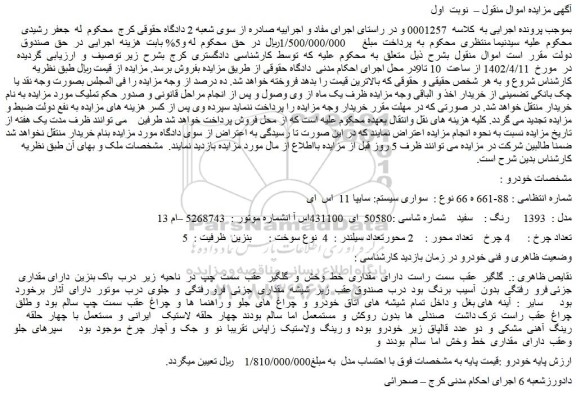 آگهی مزایده اموال منقول – نوبت اول
بموجب پرونده اجرایی به کلاسه 0001257 و در راستای اجرای مفاد و اجراییه صادره از سوی شعبه 2 دادگاه حقوقی کرج محکوم له جعفر رشیدی
محکوم علیه سیدنیما منتظری محکوم به پرداخت مبلغ 1/500/000/000ریال در حق محکوم له و5% بابت هزینه اجرایی در حق صندوق
دولت مقرر است اموال منقول بشرح ذیل متعلق به محکوم علیه که توسط کارشناسی دادگستری کرج بشرح زیر توصیف و ارزیابی گردیده
در مورخ 1402/4/11 از ساعت 10 تا9در محل اجرای احکام مدنی دادگاه حقوقی از طریق مزایده بفروش برسد. مزایده از قیمت ریال طبق نظریه
کارشناس شروع و به هر شخص حقیقی و حقوقی که بالاترین قیمت را بدهد فروخته خواهد شد. ده درصد از وجه مزایده را فی المجلس بصورت وجه نقد یا
چک بانکی تضمینی از خریدار اخذ و الباقی وجه مزایده ظرف یک ماه از وی وصول و پس از انجام مراحل قانونی و صدور حکم تملیک مورد مزایده به نام
خریدار منتقل خواهد شد. در صورتی که در مهلت مقرر خریدار وجه مزایده را پرداخت ننماید سپرده وی پس از کسر هزینه های مزایده به نفع دولت ضبط و
مزایده تجدید می گردد. کلیه هزینه های نقل وانتقال بعهده محکوم علیه است که از محل فروش پرداخت خواهد شد طرفین می توانند ظرف مدت یک هفته از
تاریخ مزایده نسبت به نحوه انجام مزایده اعتراض نمایند که در این صورت تا رسیدگی به اعتراض از سوی دادگاه مورد مزایده بنام خریدار منتقل نخواهد شد
ضمنا طالبین شرکت در مزایده می توانند ظرف 5 روز قبل از مزایده بااطلاع از مال مورد مزایده بازدید نمایند. مشخصات ملک و بهای آن طبق نظریه
کارشناس بدین شرح است.
مشخصات خودرو :
شماره انتظامی : 88-661 ه 66 نوع : سواری سیستم: سایپا 11 اس ای
مدل : 1393 رنگ : سفید شماره شاسی :50580 ای 431100اس آ انشماره موتور : 5268743 –ام 13
تعداد چرخ : 4 چرخ تعداد محور : 2 محورتعداد سیلندر : 4 نوع سوخت : بنزین ظرفیت : 5
وضعیت ظاهری و فنی خودرو در زمان بازدید کارشناسی :
نقایص ظاهری :. گلگیر عقب سمت راست دارای مقداری خط وخش و گلگیر عقب سمت چپ در ناحیه زیر درب باک بنزین دارای مقداری
جزئی فرو رفتگی بدون آسیب برنگ بود درب صندوق عقب زیر شیشه مقداری جزئی فرورفتگی و جلوی درب موتور دارای آثار برخورد
بود سایر : آینه های بغل و داخل تمام شیشه های اتاق خودرو و چراغ های جلو و راهنما ها و چراغ عقب سمت چپ سالم بود و طلق
چراغ عقب راست ترک داشت صندلی ها بدون روکش و مستعمل اما سالم بودند چهار حلقه لاستیک ایرانی و مستعمل با چهار حلقه
رینگ آهنی مشکی و دو عدد قالپاق زیر خودرو بوده و رینگ ولاستیک زاپاس تقریبا نو و جک و آچار چرخ موجود بود سپرهای جلو
وعقب دارای مقداری خط وخش اما سالم بودند و
ارزش پایه خودرو :قیمت پایه به مشخصات فوق با احتساب مدل به مبلغ1/810/000/000 ریال تعیین میگردد.
دادورزشعبه 6 اجرای احکام مدنی کرج – صحرائی